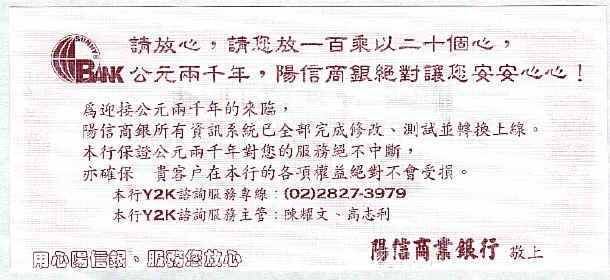 SUNNY
BANK
請放心,請您放一百乘以二十個心,
公元兩千年,陽信商銀絕對讓您安安心心!
為迎接公元兩千年的來臨,
陽信商銀所有資訊系統已全部完成修改、測試並轉換上線。
本行保證公元兩千年對您的服務絕不中斷,
亦確保 貴客戶在本行的各項權益絕對不會受損。
本行Y2K諮詢服務專線:(02)2827-3979
本行Y2K諮詢服務主管:陳耀文、高志利
用心陽信銀、服務您放心
陽信商業銀行 敬上